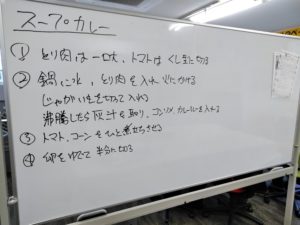 スープカレー
① とり肉は一口大、トマトはくし型に切る
② 鍋に水、とり肉を入れ 火にかける
じゃがいもを切って入れる
沸騰したら灰汁を取り、コンソメ、カレールーを入れる
③ トマト、コーンをひと煮立ちさせる
④ 卵をゆでて 半分に切る